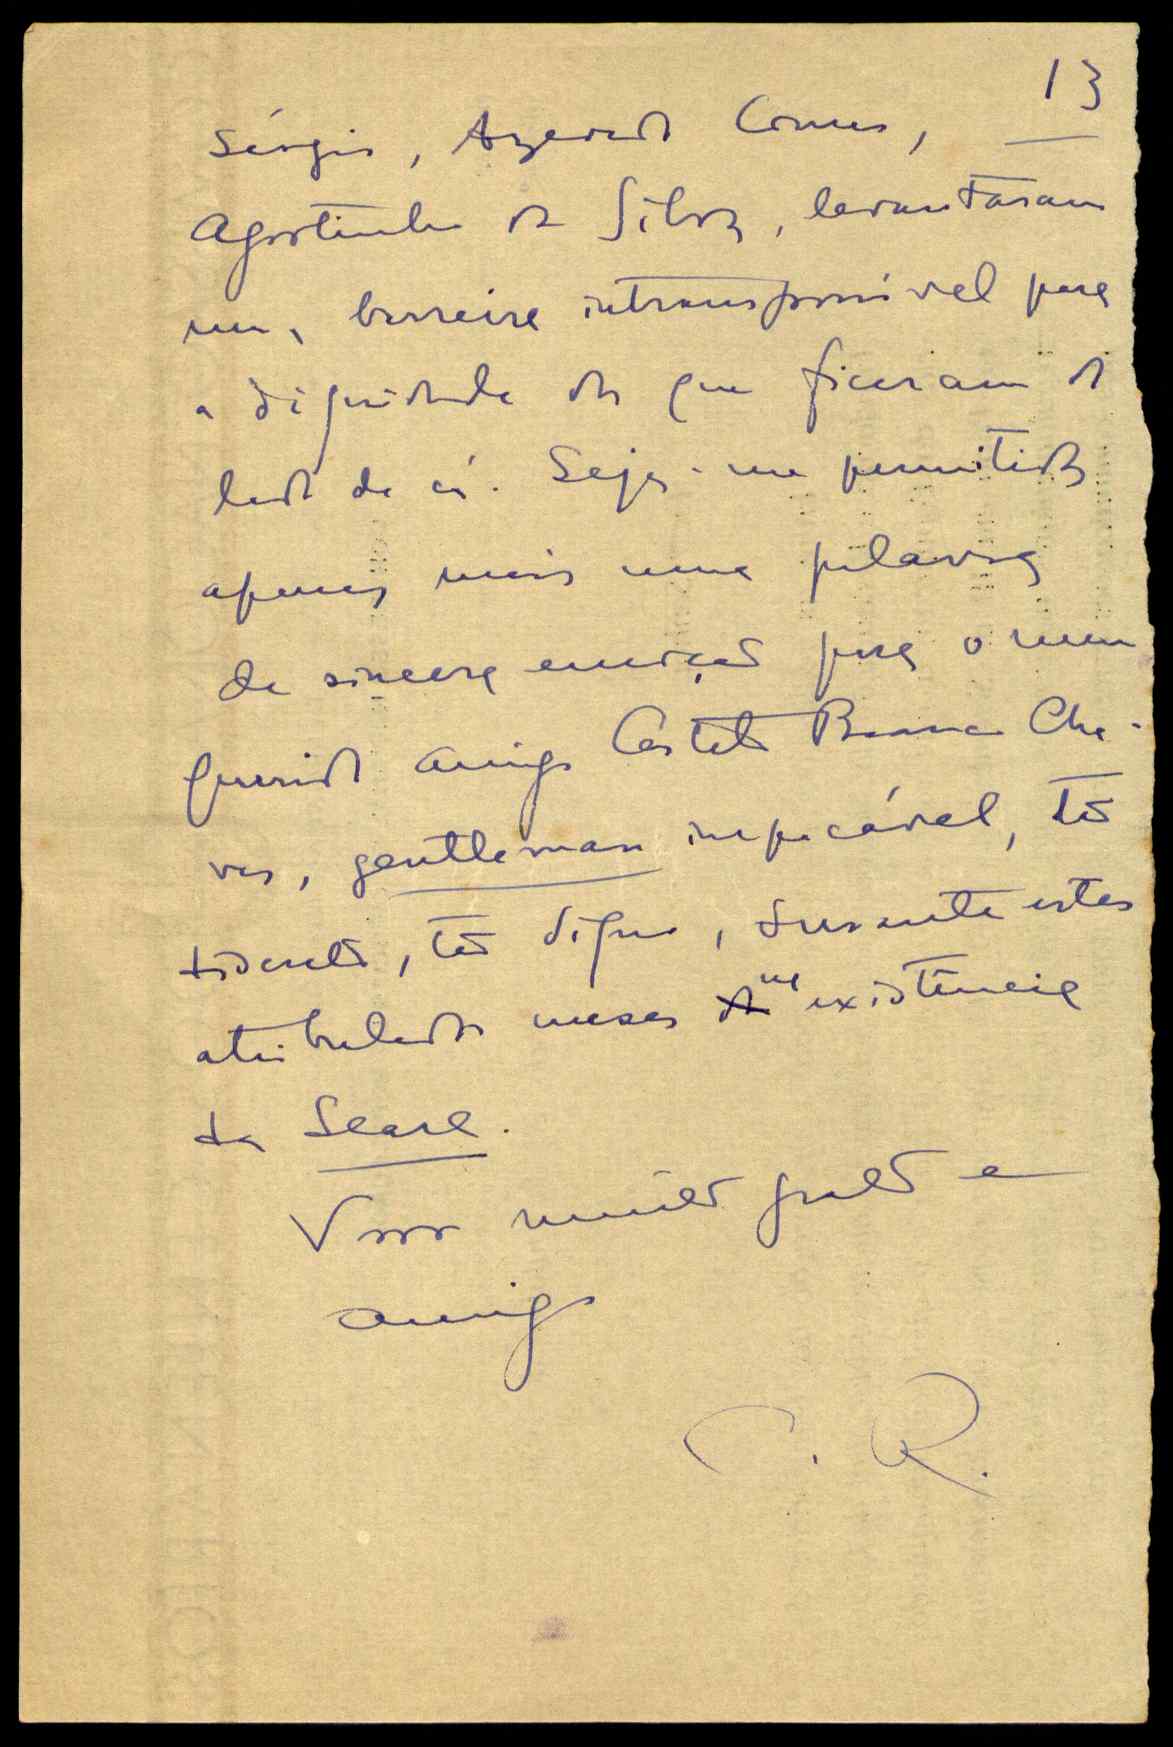 13
Sérgio, Azevedo Gomes,
Agostinho da Silva, levantaram
uma barreira intransponível para
a dignidade dos que ficaram do
lado de cá. Seja-me permitida
apenas mais uma palavra
de sincera emoção para o meu
querido amigo Castelo Branco Cha-
ves, gentleman impecável, tão
liberal, tão digno, durante estes
atribulados meses da existência
da Seara.
Vosso muito grato e
amigo
C. R.